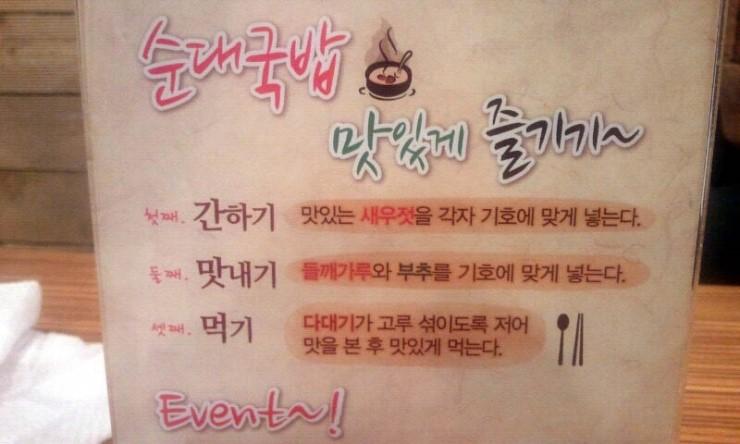 순대국밥
맛있게 즐기기~
첫째. 간하기 맛있는 새우젓을 각자 기호에 맞게 넣는다.
둘째. 맛내기 들깨가루와 부추를 기호에 맞게 넣는다.
셋째. 먹기 다대기가 고루 섞이도록 저어
맛을 본 후 맛있게 먹는다.
Event~!